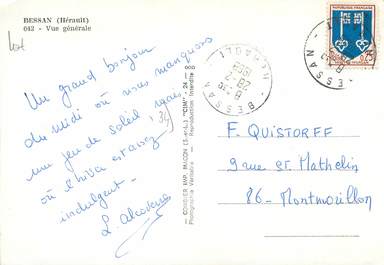 BESSAN (Hérault)
042 - Vue générale
Lot
Un grand bonjour
du midi où nous manquons
un peu de soleil mais
34
où l'hiver est assez
indulgent.
COMBIER IMP. MACON (S.-et-L.) "CIM"
Photographie Véritable - Reproduction Interdite
REPUBLIQUE FRANÇAISE
0,25
BESSAN
HERAULT
F. QUISTORFF
9 rue St. Mathelin
86 - Montmorillon